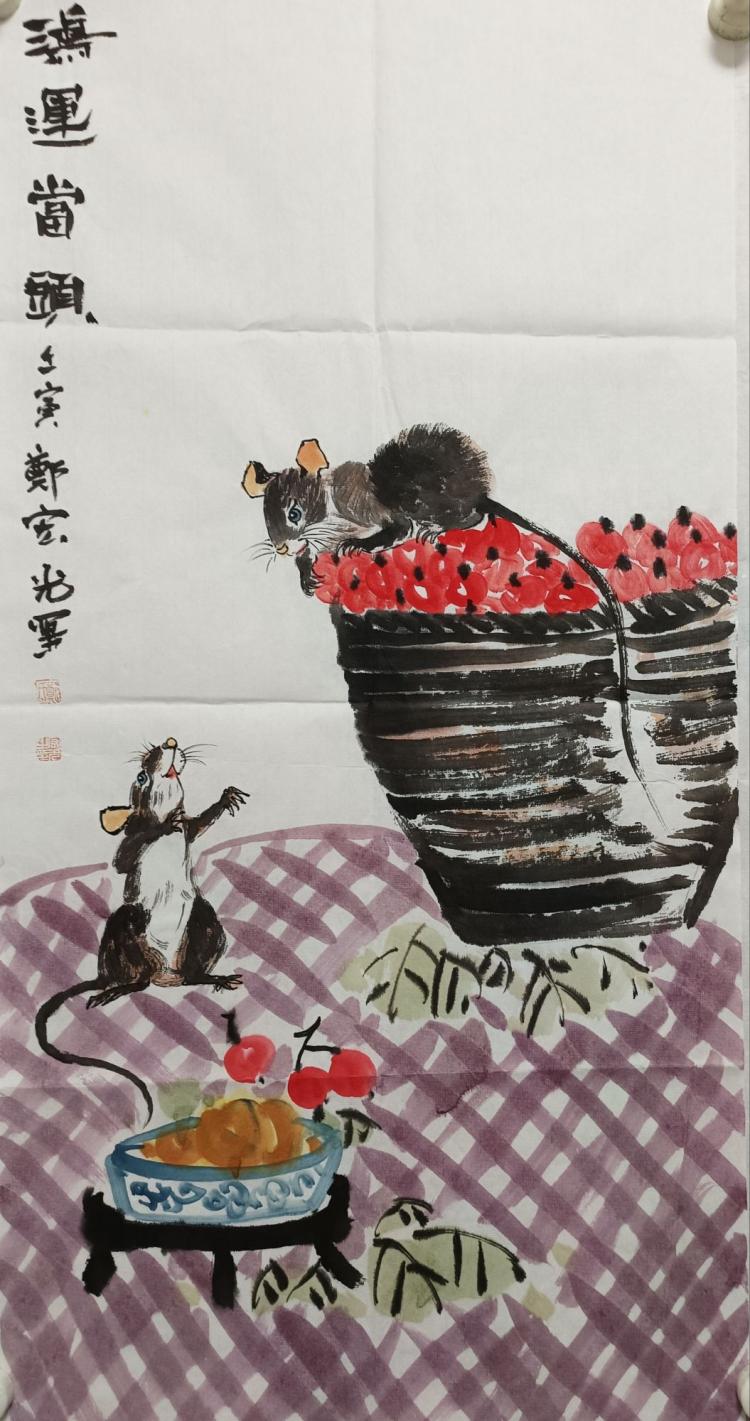 鴻運當頭
壬寅鄭宏光寫